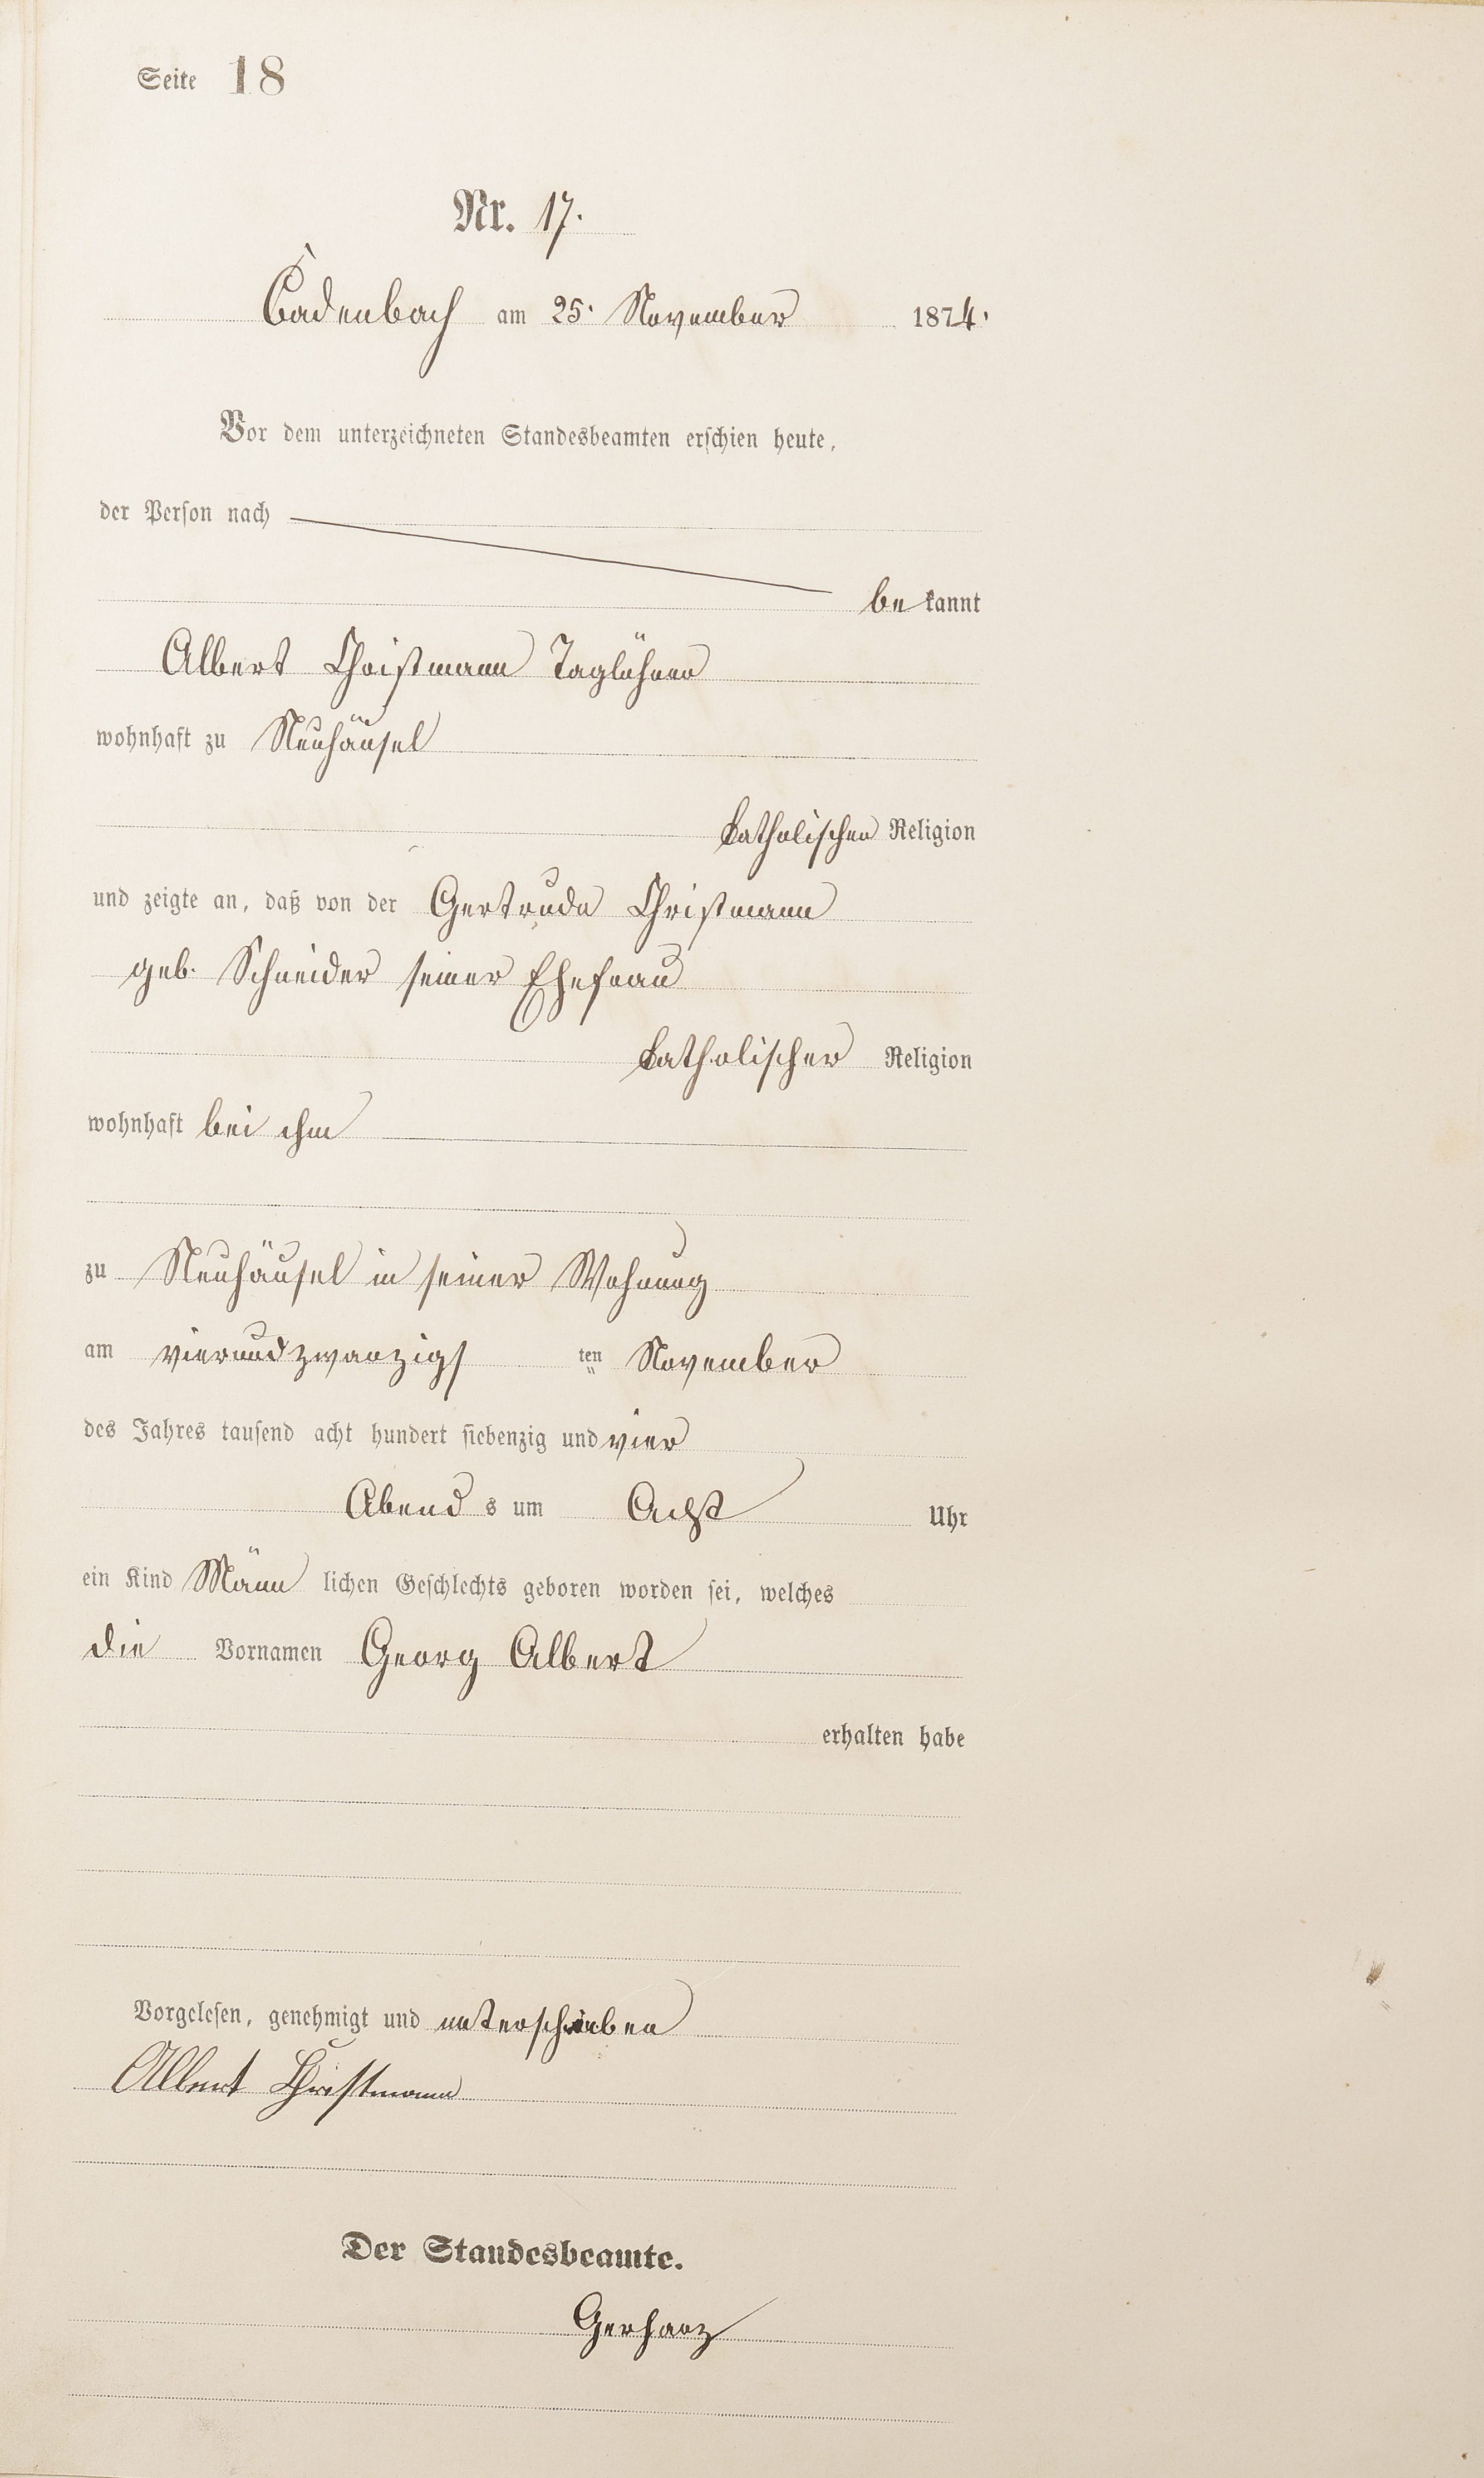 Seite 18
Nr. 17.
Cadenbach am 25. November 1874.
Vor dem unterzeichneten Standesbeamten erschien heute,
der Person nach
be kannt
Albert Christmann Taglöhner
wohnhaft zu Neuhäusel
katholischer Religion
und zeigte an, daß von der Gertrude Christmann
geb. Schneider seiner Ehefrau
katholischer Religion
wohnhaft bei ihm
zu Neuhäusel in seiner Wohnung
am vierundzwanzigs ten November
des Jahres tausend acht hundert siebenzig und vier
Abend s um Acht Uhr
ein Kind Männ lichen Geschlechts geboren worden sei, welches
die Vornamen Georg Albert
erhalten habe
Vorgelesen, genehmigt und unterschrieben
Albert Christmann
Der Standesbeamte.
Gerharz